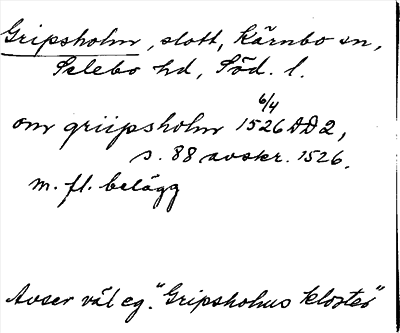 Gripsholm, slott, Kärnbo sn,
Selebo hd, Söd. l.
om griipsholm 6/4 1526 DD2,
s. 88 avskr. 1526.
m. fl. belägg
Avser väl eg. "Gripsholms kloster"